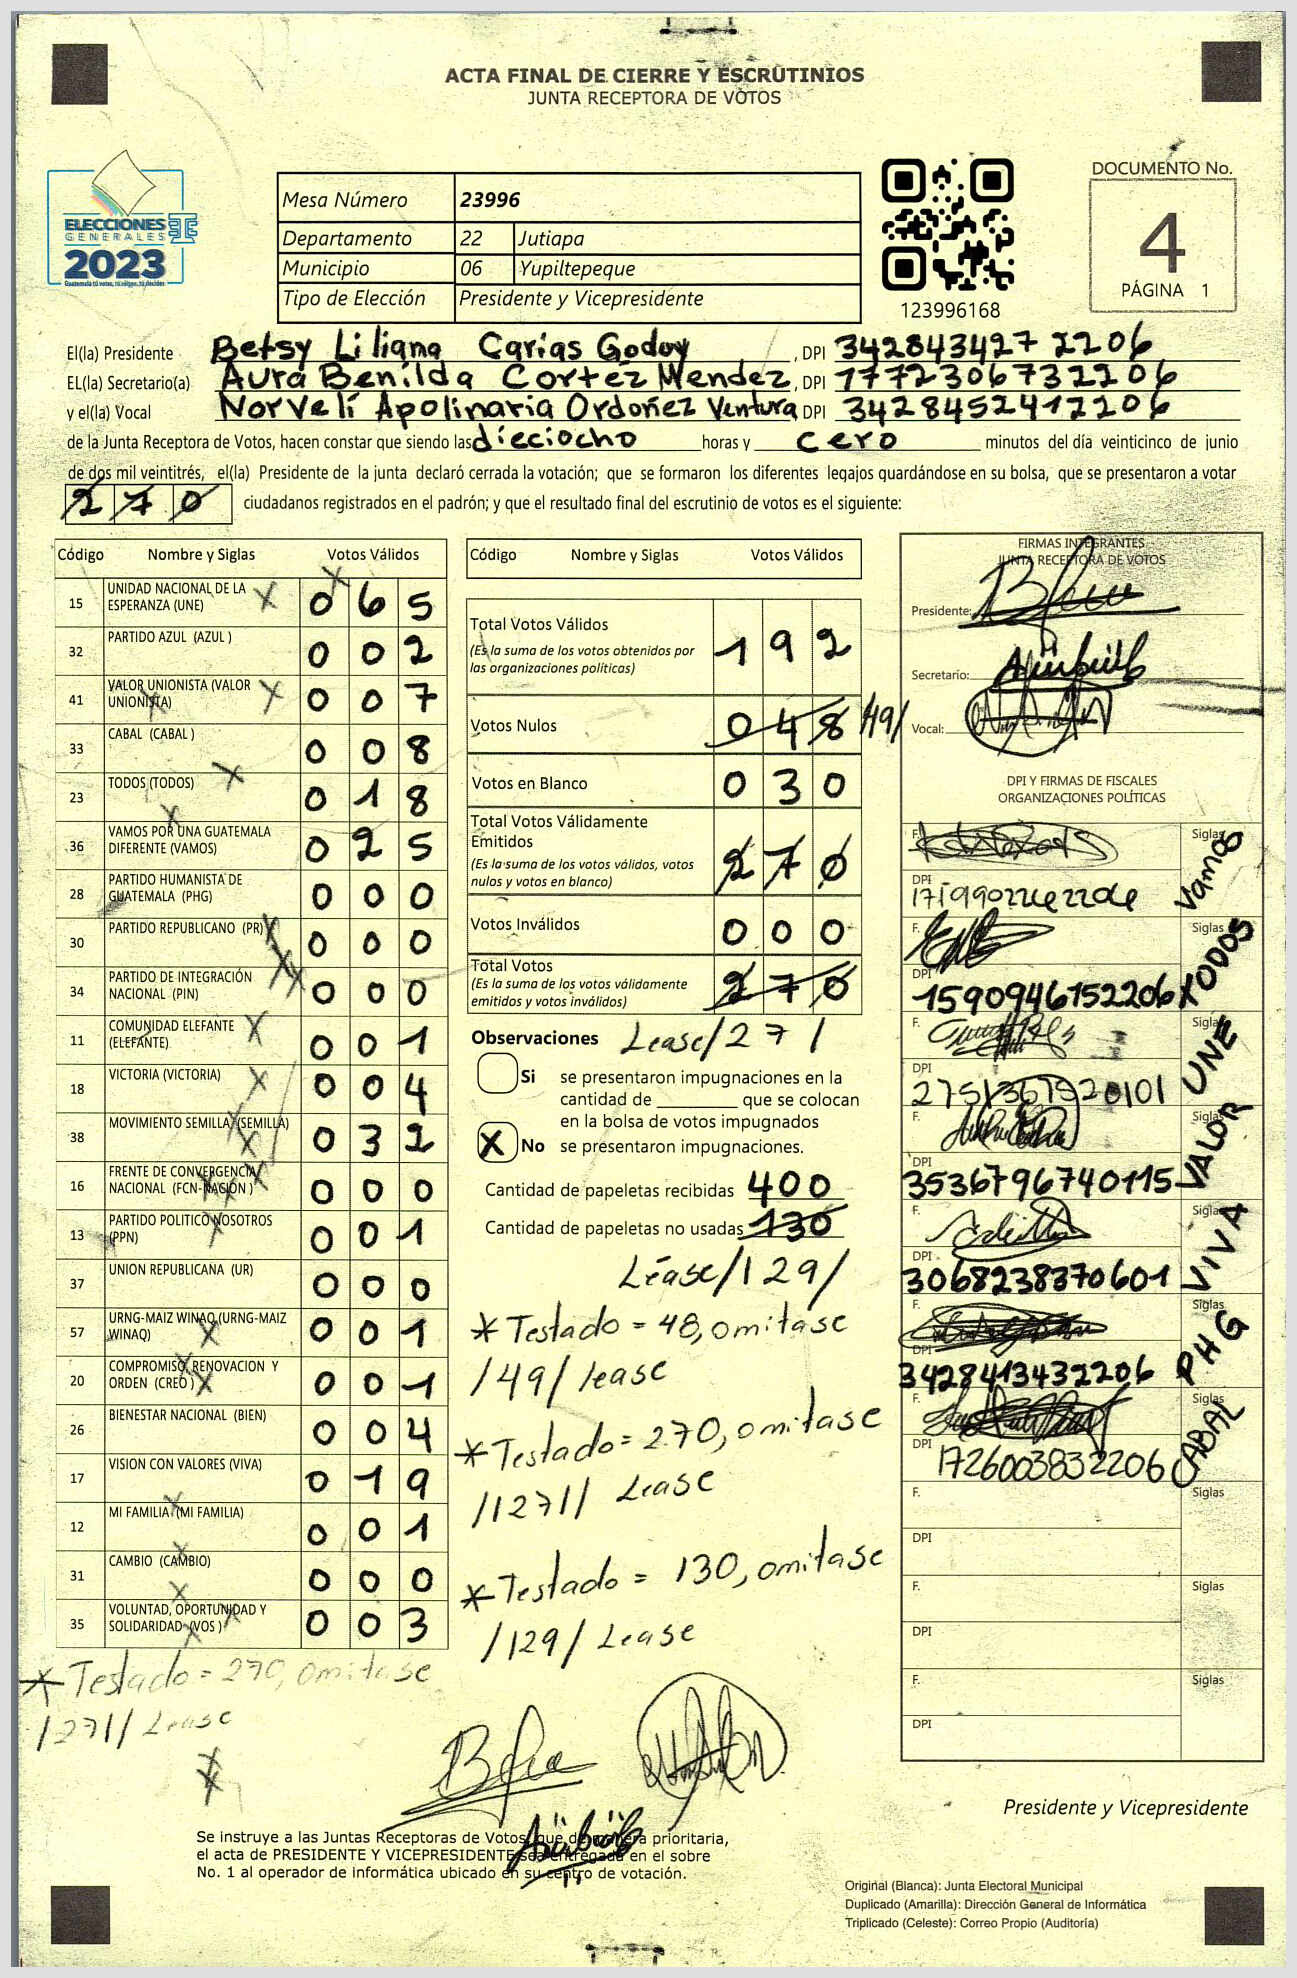 ACTA FINAL DE CIERRE Y ESCRUTINIOS
JUNTA RECEPTORA DE VOTOS
ELECCIONES
GENERALES
2023
Guatemala tú votas, tú eliges, tú decides
Mesa Número 23996
Departamento 22 Jutiapa
Municipio 06 Yupiltepeque
Tipo de Elección Presidente y Vicepresidente
123996168
DOCUMENTO No.
4
PÁGINA 1
El(la) Presidente Betsy Liliana Carías Godoy, DPI 342843427 2206
EL(la) Secretario(a) Aura Benilda Cortez Mendez, DPI 1772306732206
y el(la) Vocal Norvelí Apolinaria Ordoñez Ventura DPI 3428452412206
de la Junta Receptora de Votos, hacen constar que siendo las dieciocho horas y cero minutos del día veinticinco de junio
de dos mil veintitrés, el(la) Presidente de la junta declaró cerrada la votación; que se formaron los diferentes legajos guardándose en su bolsa, que se presentaron a votar
270 ciudadanos registrados en el padrón; y que el resultado final del escrutinio de votos es el siguiente:
Código Nombre y Siglas Votos Válidos
15 UNIDAD NACIONAL DE LA ESPERANZA (UNE) 065
32 PARTIDO AZUL (AZUL ) 002
41 VALOR UNIONISTA (VALOR UNIONISTA) 007
33 CABAL (CABAL ) 008
23 TODOS (TODOS) 018
36 VAMOS POR UNA GUATEMALA DIFERENTE (VAMOS) 025
28 PARTIDO HUMANISTA DE GUATEMALA (PHG) 000
30 PARTIDO REPUBLICANO (PR) 000
34 PARTIDO DE INTEGRACIÓN NACIONAL (PIN) 000
11 COMUNIDAD ELEFANTE (ELEFANTE) 001
18 VICTORIA (VICTORIA) 004
38 MOVIMIENTO SEMILLA (SEMILLA) 032
16 FRENTE DE CONVERGENCIA NACIONAL (FCN-NACIÓN ) 000
13 PARTIDO POLITICO NOSOTROS (PPN) 001
37 UNION REPUBLICANA (UR) 000
57 URNG-MAIZ WINAQ (URNG-MAIZ WINAQ) 001
20 COMPROMISO, RENOVACION Y ORDEN (CREO ) 001
26 BIENESTAR NACIONAL (BIEN) 004
17 VISION CON VALORES (VIVA) 019
12 MI FAMILIA (MI FAMILIA) 001
31 CAMBIO (CAMBIO) 000
35 VOLUNTAD, OPORTUNIDAD Y SOLIDARIDAD (VOS ) 003
* Testado = 270, omitase
/271/ Lease
Código Nombre y Siglas Votos Válidos
Total Votos Válidos 192
(Es la suma de los votos obtenidos por
las organizaciones políticas)
Votos Nulos 048 /49/
Votos en Blanco 030
Total Votos Válidamente
Emitidos 270
(Es la suma de los votos válidos, votos
nulos y votos en blanco)
Votos Inválidos 000
Total Votos 270
(Es la suma de los votos válidamente
emitidos y votos inválidos)
Observaciones Lease/271
Si se presentaron impugnaciones en la
cantidad de ________ que se colocan
en la bolsa de votos impugnados
X No se presentaron impugnaciones.
Cantidad de papeletas recibidas 400
Cantidad de papeletas no usadas 130
Léase/129/
* Testado = 48, omitase
/49/ lease
* Testado = 270, omitase
/1271/ Lease
* Testado = 130, omitase
/129/ Lease
FIRMAS INTEGRANTES
JUNTA RECEPTORA DE VOTOS
Presidente:
Secretario:
Vocal:
DPI Y FIRMAS DE FISCALES
ORGANIZACIONES POLÍTICAS
F. Siglas Vamos
DPI
F. Siglas TODOS
DPI 1590946152206
F. Siglas UNE
DPI 2751367920101
F. Siglas VALOR
DPI 3536796740115
F. Siglas VIVA
DPI 3068238370601
F. Siglas PHG
DPI 3428413432206
F. Siglas CABAL
DPI 1726003832206
F. Siglas
DPI
F. Siglas
DPI
F. Siglas
DPI
Presidente y Vicepresidente
Se instruye a las Juntas Receptoras de Votos, que de manera prioritaria,
el acta de PRESIDENTE Y VICEPRESIDENTE sea entregada en el sobre
No. 1 al operador de informática ubicado en su centro de votación.
Original (Blanca): Junta Electoral Municipal
Duplicado (Amarilla): Dirección General de Informática
Triplicado (Celeste): Correo Propio (Auditoría)